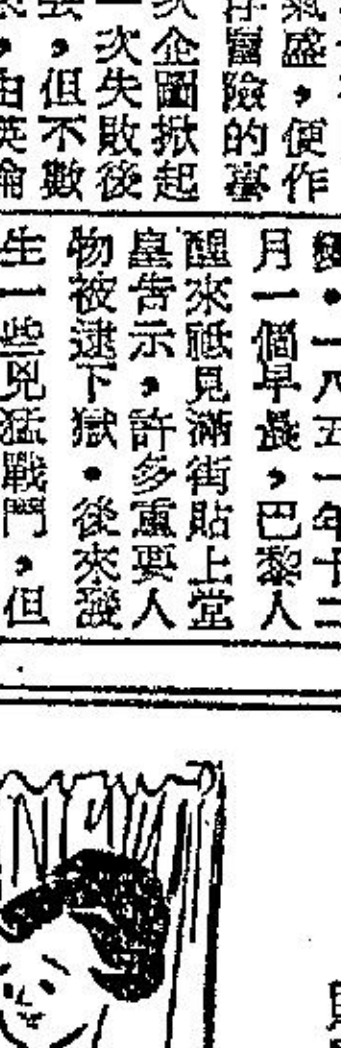 氣盛，便作
冒險的事
次企圖掀起
一次失敗後
，但不數
，由英倫
。一八五一年十二
月一個早晨，巴黎人
醒來祗見滿街貼上堂
皇告示，許多重要人
物被逮下獄。後來發
生一些兇猛戰鬥，但